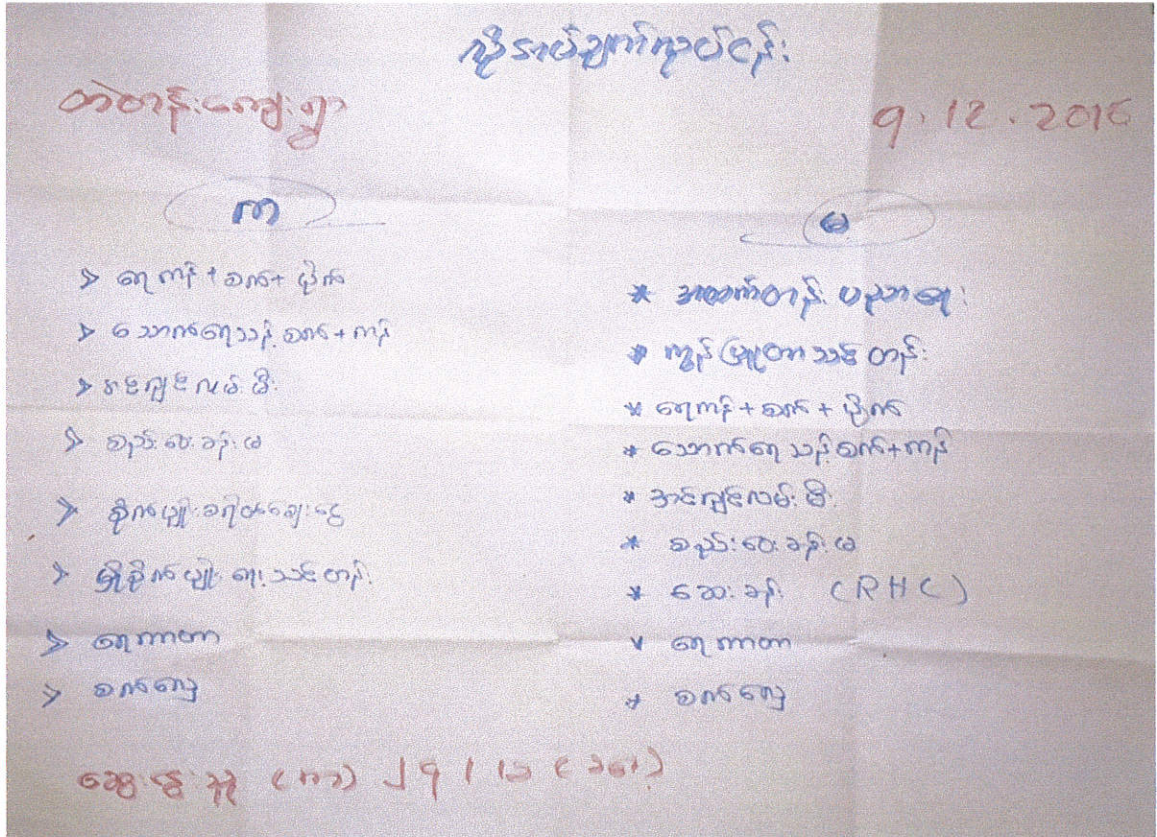 လိုအပ်ချက်လုပ်ငန်း
တဲတန်းကျေးရွာ
9.12.2016
ကာ
> ရေကန် + စက် + ပိုက်
> သောက်ရေသန့်စက် + ကန်
> အင်ဂျင်လမ်းမီး
> စည်းဝေးခန်းမ
> စိုက်ပျိုးစရိတ်ချေးငွေ
> စိုက်ပျိုးရေးသင်တန်း
> ရေကာတာ
> စက်လှေ
မ
* အထက်တန်းပညာရေး
* ကွန်ပြူတာသင်တန်း
* ရေကန် + စက် + ပိုက်
* သောက်ရေသန့်စက် + ကန်
* အင်ဂျင်လမ်းမီး
* စည်းဝေးခန်းမ
* ဆေးခန်း (RHC)
* ရေကာတာ
* စက်လှေ
ဆွေးနွေးသူ (ကာ)